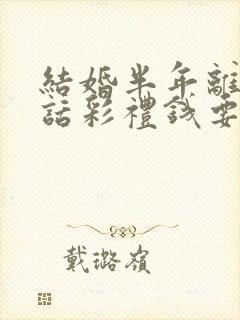 結婚半年離
話彩禮錢要
戴璐嶺